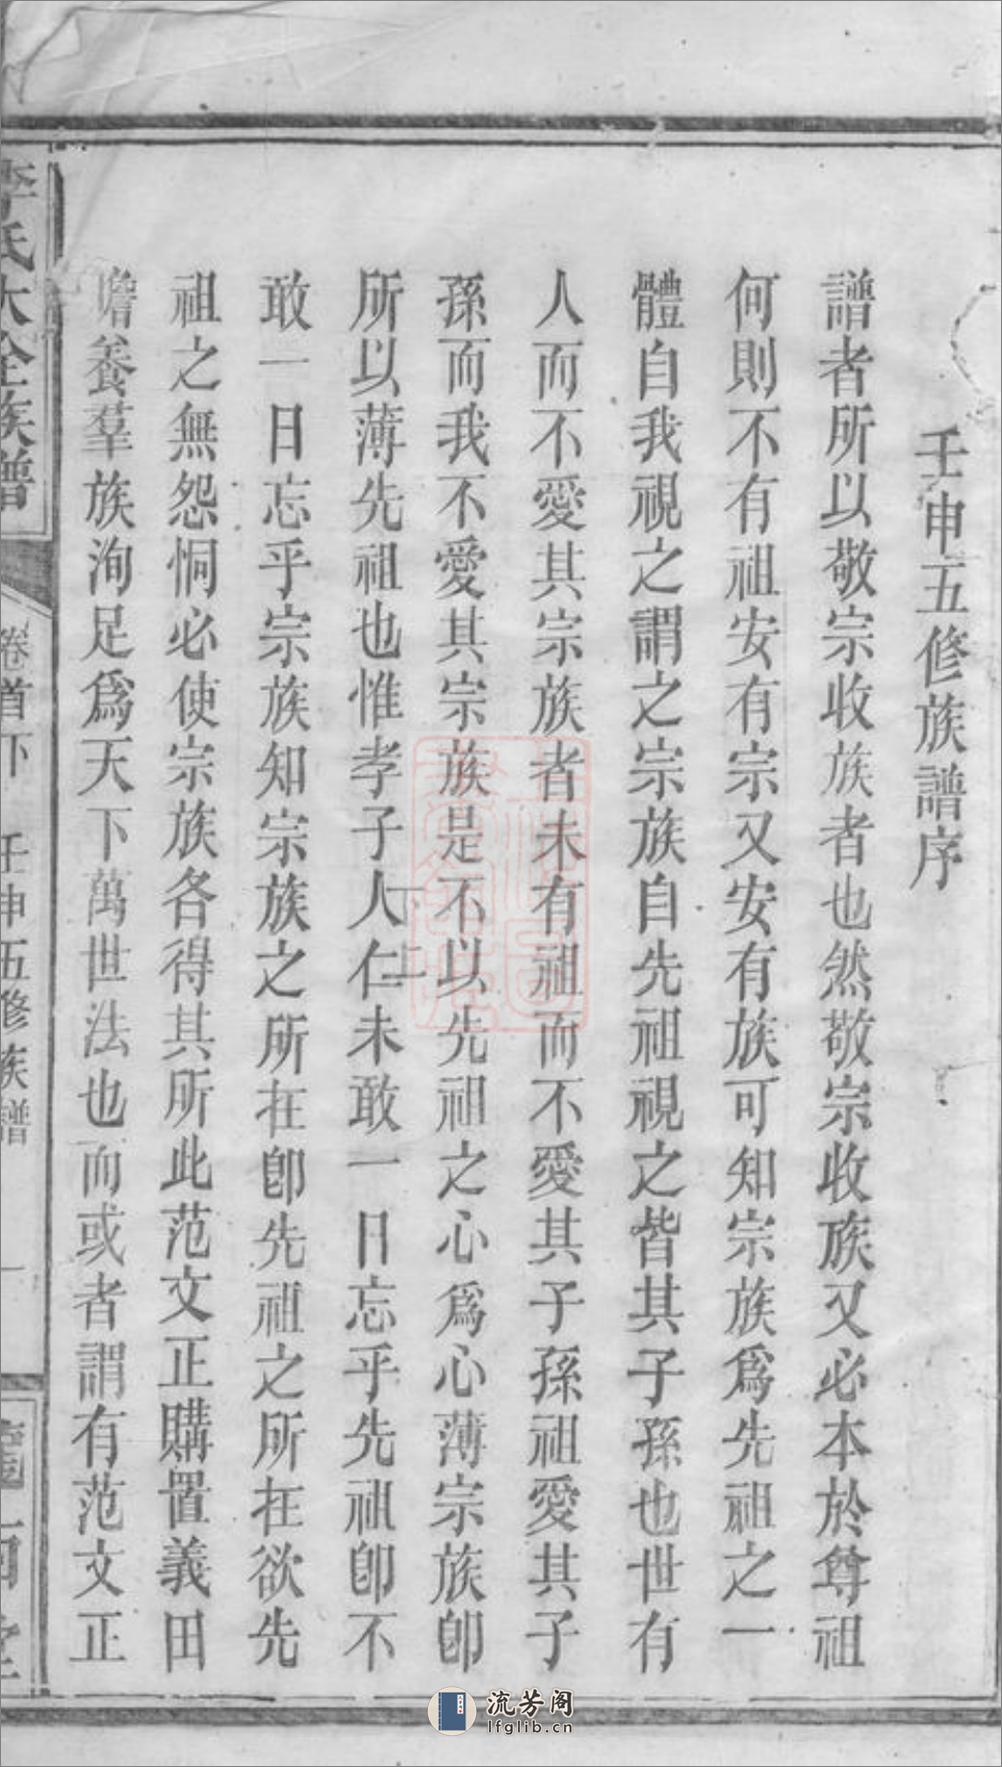 壬申五修族譜序
譜者所以敬宗收族者也然敬宗收族又必本於尊祖
何則不有祖安有宗又安有族可知宗族爲先祖之一
體自我視之謂之宗族自先祖視之皆其子孫也世有
人而不愛其宗族者未有祖而不愛其子孫祖愛其子
孫而我不愛其宗族是不以先祖之心爲心薄宗族卽
所以薄先祖也惟孝子仁人未敢一日忘乎先祖卽不
敢一日忘乎宗族知宗族之所在卽先祖之所在欲先
祖之無怨恫必使宗族各得其所此范文正購置義田
贍養羣族洵足爲天下萬世法也而或者謂有范文正
李氏大全族譜
卷首下
壬申五修族譜
一
流芳阁
lfglib.cn